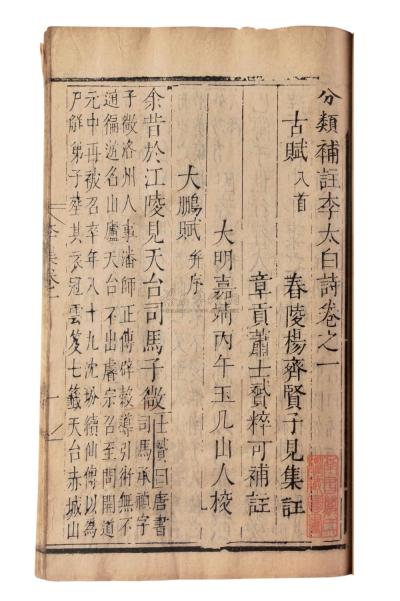 分類補註李太白詩卷之一
古賦 八首
舂陵楊齊賢子見集註
章貢蕭士贇粹可補註
大明嘉靖丙午玉几山人校
大鵬賦 并序
余昔於江陵見天台司馬子微 士贇曰唐書
司馬承禎字
子微洛州人事潘師正傳辟穀導引術無不
通徧遊名山廬天台不出睿宗召至問開道
元中再被召卒年八十九沈汾續仙傳以為
尸解弟子葬其衣冠雲笈七籤天台赤城山
李集卷一